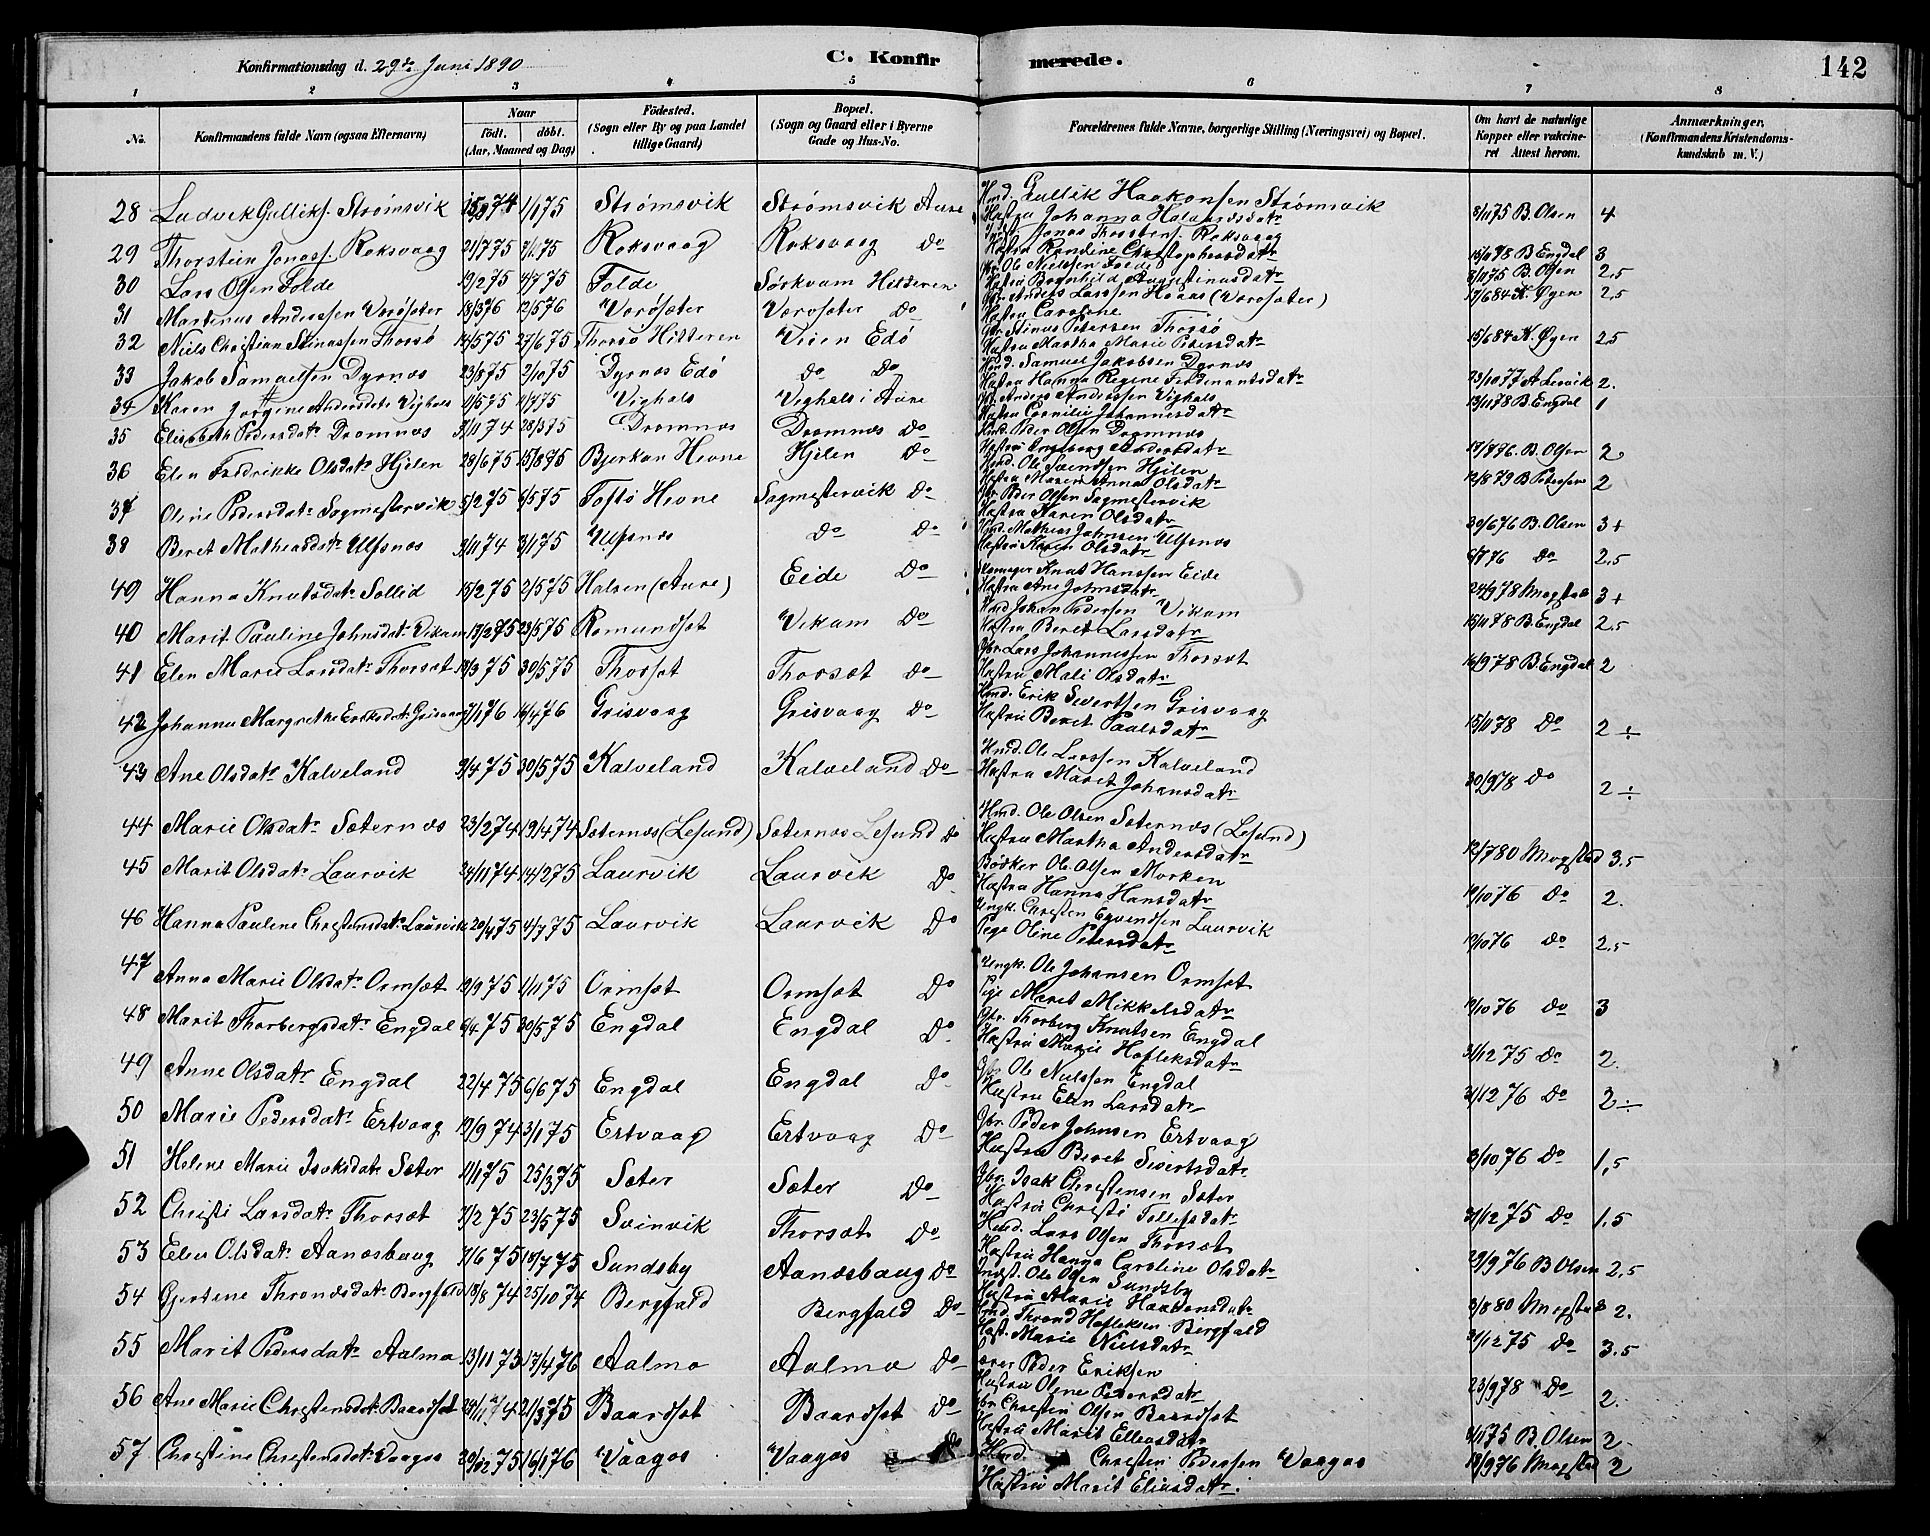 Konfirmationsdag d. 29de Juni 1890
C. Konfir merede.
142
1 2 3 4 5 6 7 8
No. Konfirmandens fulde Navn (ogsaa Efternavn) Naar født. døbt. (Aar, Maaned og Dag) Födested. (Sogn eller By og paa Landet tillige Gaard) Bopæl. (Sogn og Gaard eller i Byerne Gade og Hus-No. Forældrenes fulde Navne, borgerlige Stilling (Næringsvei) og Bopæl. Om havt de naturlige Kopper eller vakcineret Attest herom. Anmærkninger, (Konfirmandens Kristendomskundskab m. V.)
28 Ludvik Galliks. Strømsvik 74 1/1 75 Strømsvik Strømsvik Aure Hmd. Gullik Haakonsen Strømsvik
Hustru Johanna Halvardsdatr 8/11 75 B. Olsen 4
29 Thorstein Jonass. Roksvaag 21/7 75 75 Roksvaag Roksvaag Do Jonas Thorstens. Roksvaag
Hustru Randine Christophersdatr 15/10 78 B Engdal 3
30 Lars Olsen Folde 19/2 75 4/7 75 Folde Sørkvam Hitteren Gbr. Ole Nielssen Folde
Hustru Brynhild Augustinusdatr 8/11 75 B. Olsen 2,5
31 Martinus Anderssen Værøsæter 18/3 76 12/5 76 Værøsæter Værøsæter Do Gbr. Anders Larssen Hoaas (Værøsæter)
Hustru Caroline 17/6 84 K. Øyen 2,5
32 Niels Christian Stinussen Thorsø 14/5 75 27/6 75 Thorsø Hitteren Veien Edø Gbr. Stinus Petersen Thorsø
Hustru Martha Marie Pedersdatr 15/6 84 K. Øyen 25
33 Jakob Samuelsen Dyrnes 23/8 75 2/10 75 Dyrnes Edø Do Do Hmd. Samuel Jakobsen Dyrnes
Hustru Hanna Regine Ferdinantsdatr 23/10 77 A Lervik 2.
34 Karen Jørgine Andersdatr Vighals 11/5 75 75 Vighals Vighals i Aure Gbr. Anders Anderssen Vighals
Hustru Cornilie Johannesdatr 13/11 78 B. Engdal 1
35 Elisabeth Pedersdatr Dromnes 9/11 74 28/3 75 Dromnes Dromnes Do Hmd. Peder Olsen Dromnes
Hustru Ingeborg Andersdatr 17/8 76. B. Olsen 2
36 Elen Fredrikke Olsdatr Hjelen 28/6 75 15/8 75 Bjerkan Hevne Hjelen Do Hmd. Ole Svendsen Hjelen
Hustru Maren Anna Olsdatr 12/8 79 B Petersen 2
37 Oline Pedersdatr Sagmestervik 5/2 75 6/5 75 Toftø Hevne Sagmestervik Do Gbr. Peder Olsen Sagmestervik
Hustru Karen Olsdatr 30/6 76 B. Olsen 3+
38 Beret Matheasdatr Ulfsnes 9/11 74 3/1 75 Ulfsnes Do Do Hmd. Matheas Johnsen Ulfsnes
Hustru Karen Olsdatr 6/7 76 Do 2,5
49 Hanna Knutsdatr Sollid 15/2 75 2/5 75 Halsen (Aure) Eide Do Skomager Knut Hanssen Eide
Hustru Ane Johnsdatr 24/9 78 Mogstad 3+
40 Marit Pauline Johnsdatr Vikam 17/2 75 23/5 75 Romundset Vikam Do Hmd. Johan Pedersen Vikam
Hustru Beret Larsdatr 15/11 78 B. Engdal 2,5
41 Elen Marie Larsdatr Thorset 13/3 75 30/5 75 Thorset Thorset Do Gbr. Lars Johannessen Thorset
Hustru Mali Olsdatr 16/9 78 B. Engdal 2
42 Johanna Margrethe Eriksdatr Grisvaag 7/1 76 16/4 76 Grisvaag Grisvaag Do Hmd. Erik Sivertsen Grisvaag
Hustru Beret Paulsdatr 15/11 78 Do 2÷
43 Ane Olsdatr Kalveland 9/4 75 30/5 75 Kalveland Kalveland Do Hmd. Ole Larssen Kalveland
Hustru Marit Johansdatr 30/9 78 Do 2÷
44 Marie Olsdatr Sæternes 23/2 74 19/4 74 Sæternes (Lesund) Sæternes Lesund Do Hmd. Ole Olsen Sæternes (Lesund)
Hustru Martha Andersdatr 12/7 80 Mogstad 3,5
45 Marit Olsdatr Laurvik 24/11 74 14/2 75 Laurvik Laurvik Do Bødker Ole Olsen Morken
Hustru Hanna Hansdatr 19/10 76 Do 2.
46 Hanna Pauline Christensdatr Laurvik 20/4 75 4/7 75 Laurvik Laurvik Do Ungk. Christen Eyvendsen Laurvik
Pige Oline Petersdatr 19/10 76 Do 2,5
47 Anna Marie Olsdatr Ormset 19/9 75 1/11 75 Ormset Ormset Do Ungk. Ole Johansen Ormset
Pige Marit Mikkelsdatr 19/10 76 Do 3
48 Marit Thorbergsdatr Engdal 6/4 75 30/5 75 Engdal Engdal Do Gbr. Thorberg Knutsen Engdal
Hustru Marie Hafleksdatr 31/12 75 Do 2.
49 Anne Olsdatr Engdal 22/4 75 6/6 75 Engdal Engdal Do Gbr. Ole Nielssen Engdal
Hustru Elen Larsdatr 31/12 76 Do 2÷
50 Marie Pedersdatr Ertvaag 19/9 74 3/1 75 Ertvaag Ertvaag Do Gbr. Peder Johnsen Ertvaag
Hustru Beret Sivertsdatr 3/10 76 Do 1,5
51 Helene Marie Isaksdatr Sæter 11/1 75 25/3 75 Sæter Sæter Do Gbr. Isak Christensen Sæter
Hustru Christi Tollefsdatr 31/12 75 Do 1,5
52 Christi Larsdatr Thorset 7/2 75 23/5 75 Svinvik Thorset Do Hmd. Lars Olsen Thorset
Hustru Hanna Caroline Olsdatr 29/9 76 B Olsen 2,5
53 Elen Olsdatr Aanesbaug 7/6 75 18/7 75 Sundsby Aanesbaug Do Indst. Ole Olsen Sundsby
Hustru Marie Haakonsdatr 3/8 80 Mogstad 2.
54 Gjertine Thronesdatr Bergfald 18/8 74 25/10 74 Bergfald Bergfald Do Hmd. Thrond Hafleksen Bergfald
Hust. Marie Nielsdatr 31/12 75 Do 3,5
55 Marit Pedersdatr Aalmo 13/11 75 17/4 76 Aalmo Aalmo Do Peder Eriksen
Hustru Oline Petersdatr 23/9 78 Do 2.
56 Ane Marie Christensdatr Baardset 24/11 74 21/3 75 Baardset Baardset Do Gbr Christen Olsen Baardset
Hustru Marit Ellensdatr 75 B. Olsen 2.
57 Christine Christensdatr Vaagos 20/12 75 16/1 76 Vaagos Vaagos Do Hmd. Christen Pederssen Vaagos
Hustru Marit Eliasdatr. 18/9 76 Mogstad 2